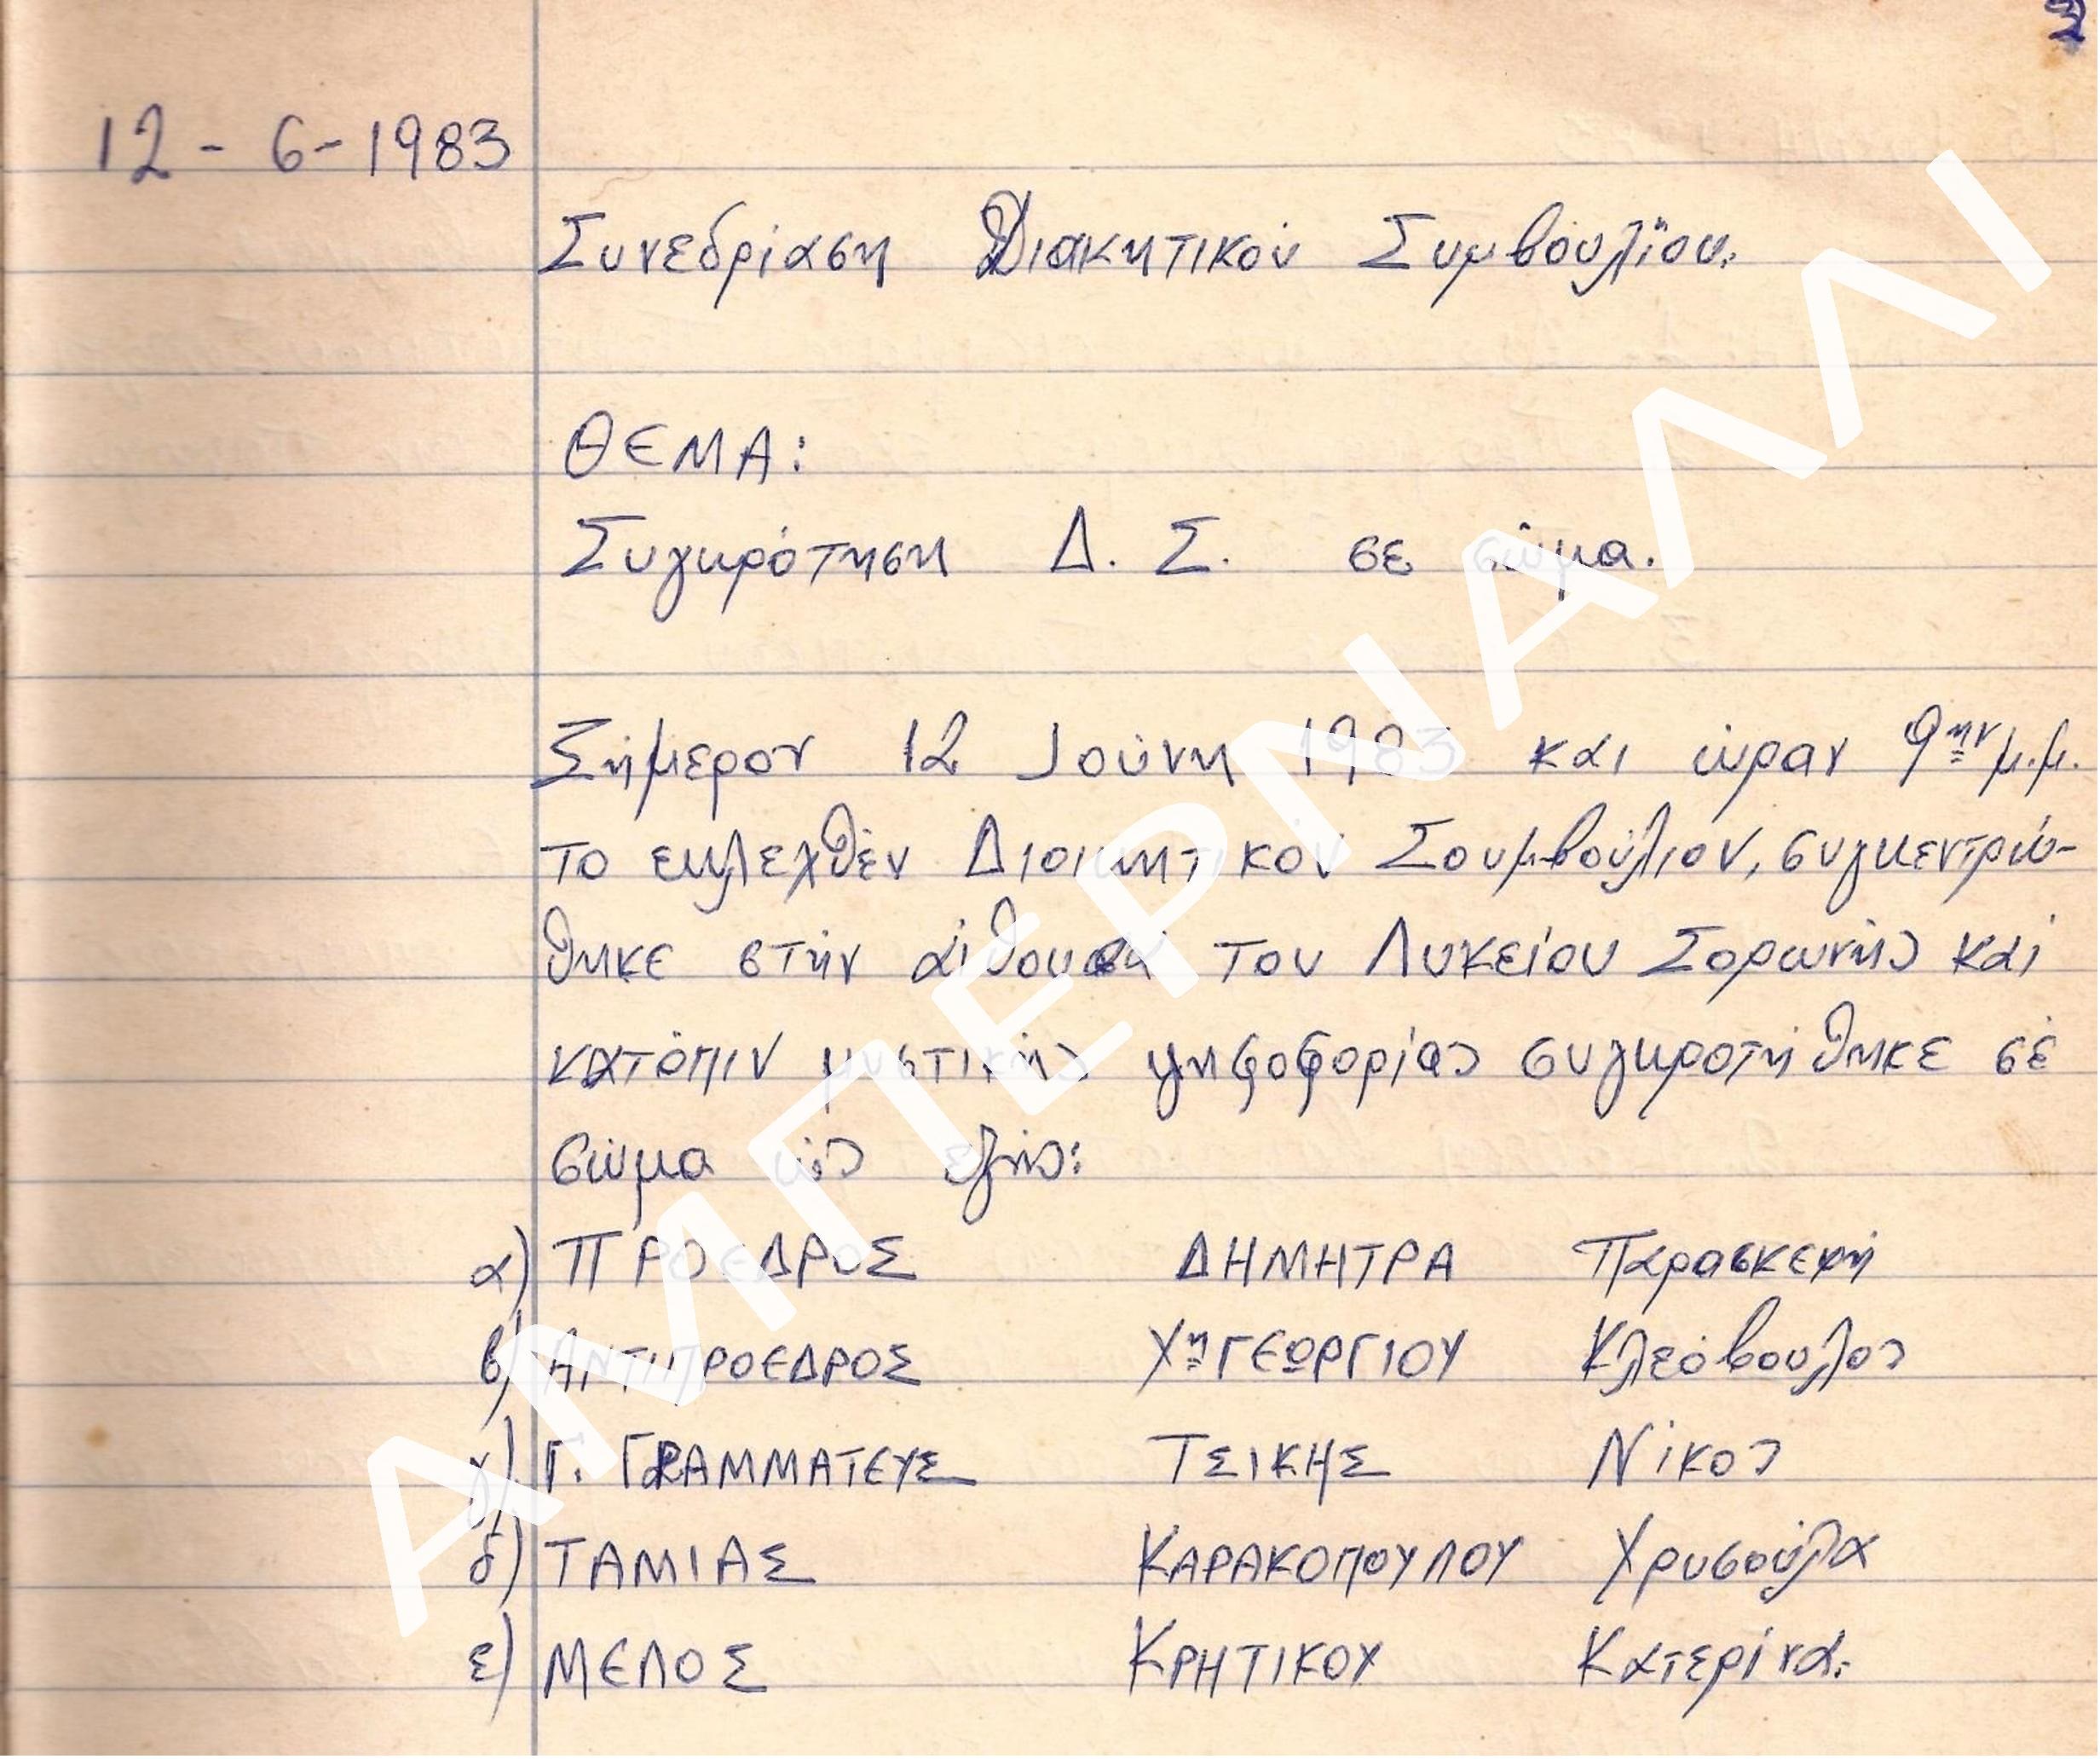 2
12 - 6 - 1983
Συνεδρίαση Διακητικού Συμβουλίου.
ΘΕΜΑ:
Συγκρότηση Δ. Σ. σε σώμα.
Σήμερον 12 Ιούνη 1983 και ώραν 9ην μ.μ.
το εκλεχθέν Διοικητικόν Σουμβούλιον, συγκεντρώ-
θηκε στήν αίθουσα του Λυκείου Σορωνής καί
κατόπιν μυστικής ψηφοφορίας συγκροτήθηκε σέ
σώμα ώς εξής:
α) ΠΡΟΕΔΡΟΣ ΔΗΜΗΤΡΑ Παρασκευή
β) ΑΝΤΙΠΡΟΕΔΡΟΣ ΧηΓΕΩΡΓΙΟΥ Κλεόβουλος
γ) Γ. ΓΡΑΜΜΑΤΕΥΣ ΤΣΙΚΗΣ Νίκος
δ) ΤΑΜΙΑΣ ΚΑΡΑΚΟΠΟΥΛΟΥ Χρυσούλα
ε) ΜΕΛΟΣ ΚΡΗΤΙΚΟΥ Κατερίνα.
ΑΜΠΕΡΝΑΛΛΙ